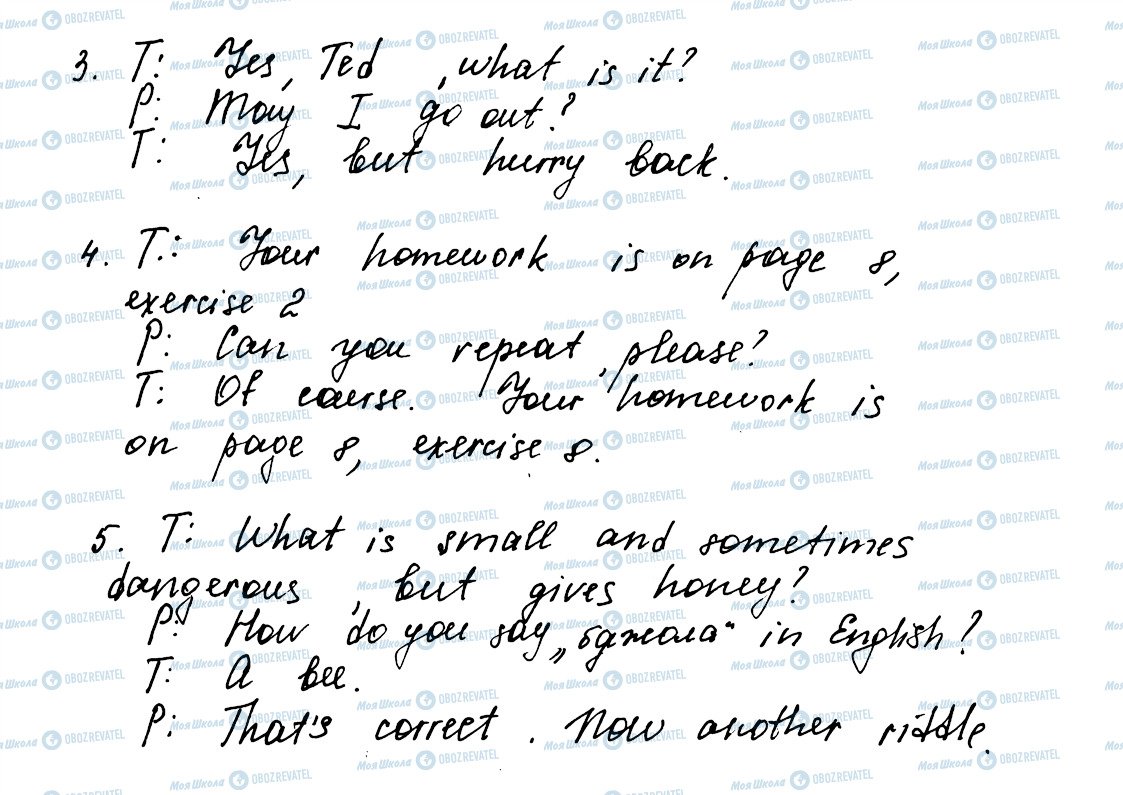 3. T: Yes, Ted, what is it?
P: May I go out?
T: Yes, but hurry back.
4. T.: Your homework is on page 8,
exercise 2
P: Can you repeat, please?
T: Of course. Your homework is
on page 8, exercise 8.
5. T: What is small and sometimes
dangerous, but gives honey?
P: How do you say „бджола“ in English?
T: A bee.
P: That's correct. Now another riddle.